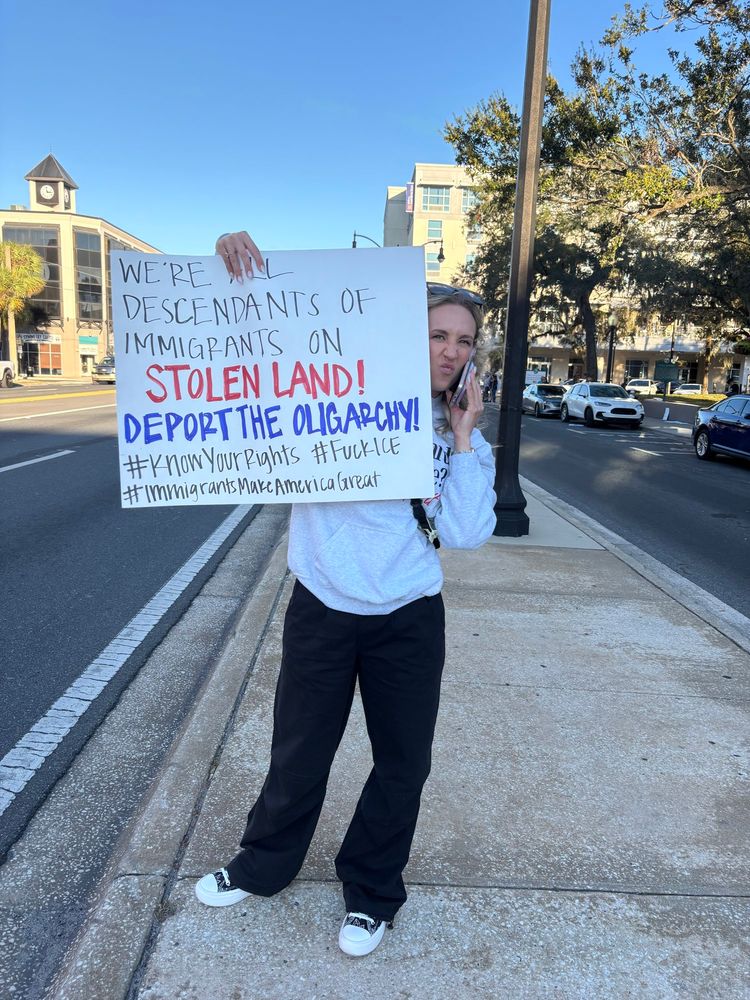 WE'RE ALL
DESCENDANTS OF
IMMIGRANTS ON
STOLEN LAND!
DEPORT THE OLIGARCHY!
#KnowYourRights #FuckICE
#ImmigrantsMakeAmericaGreat